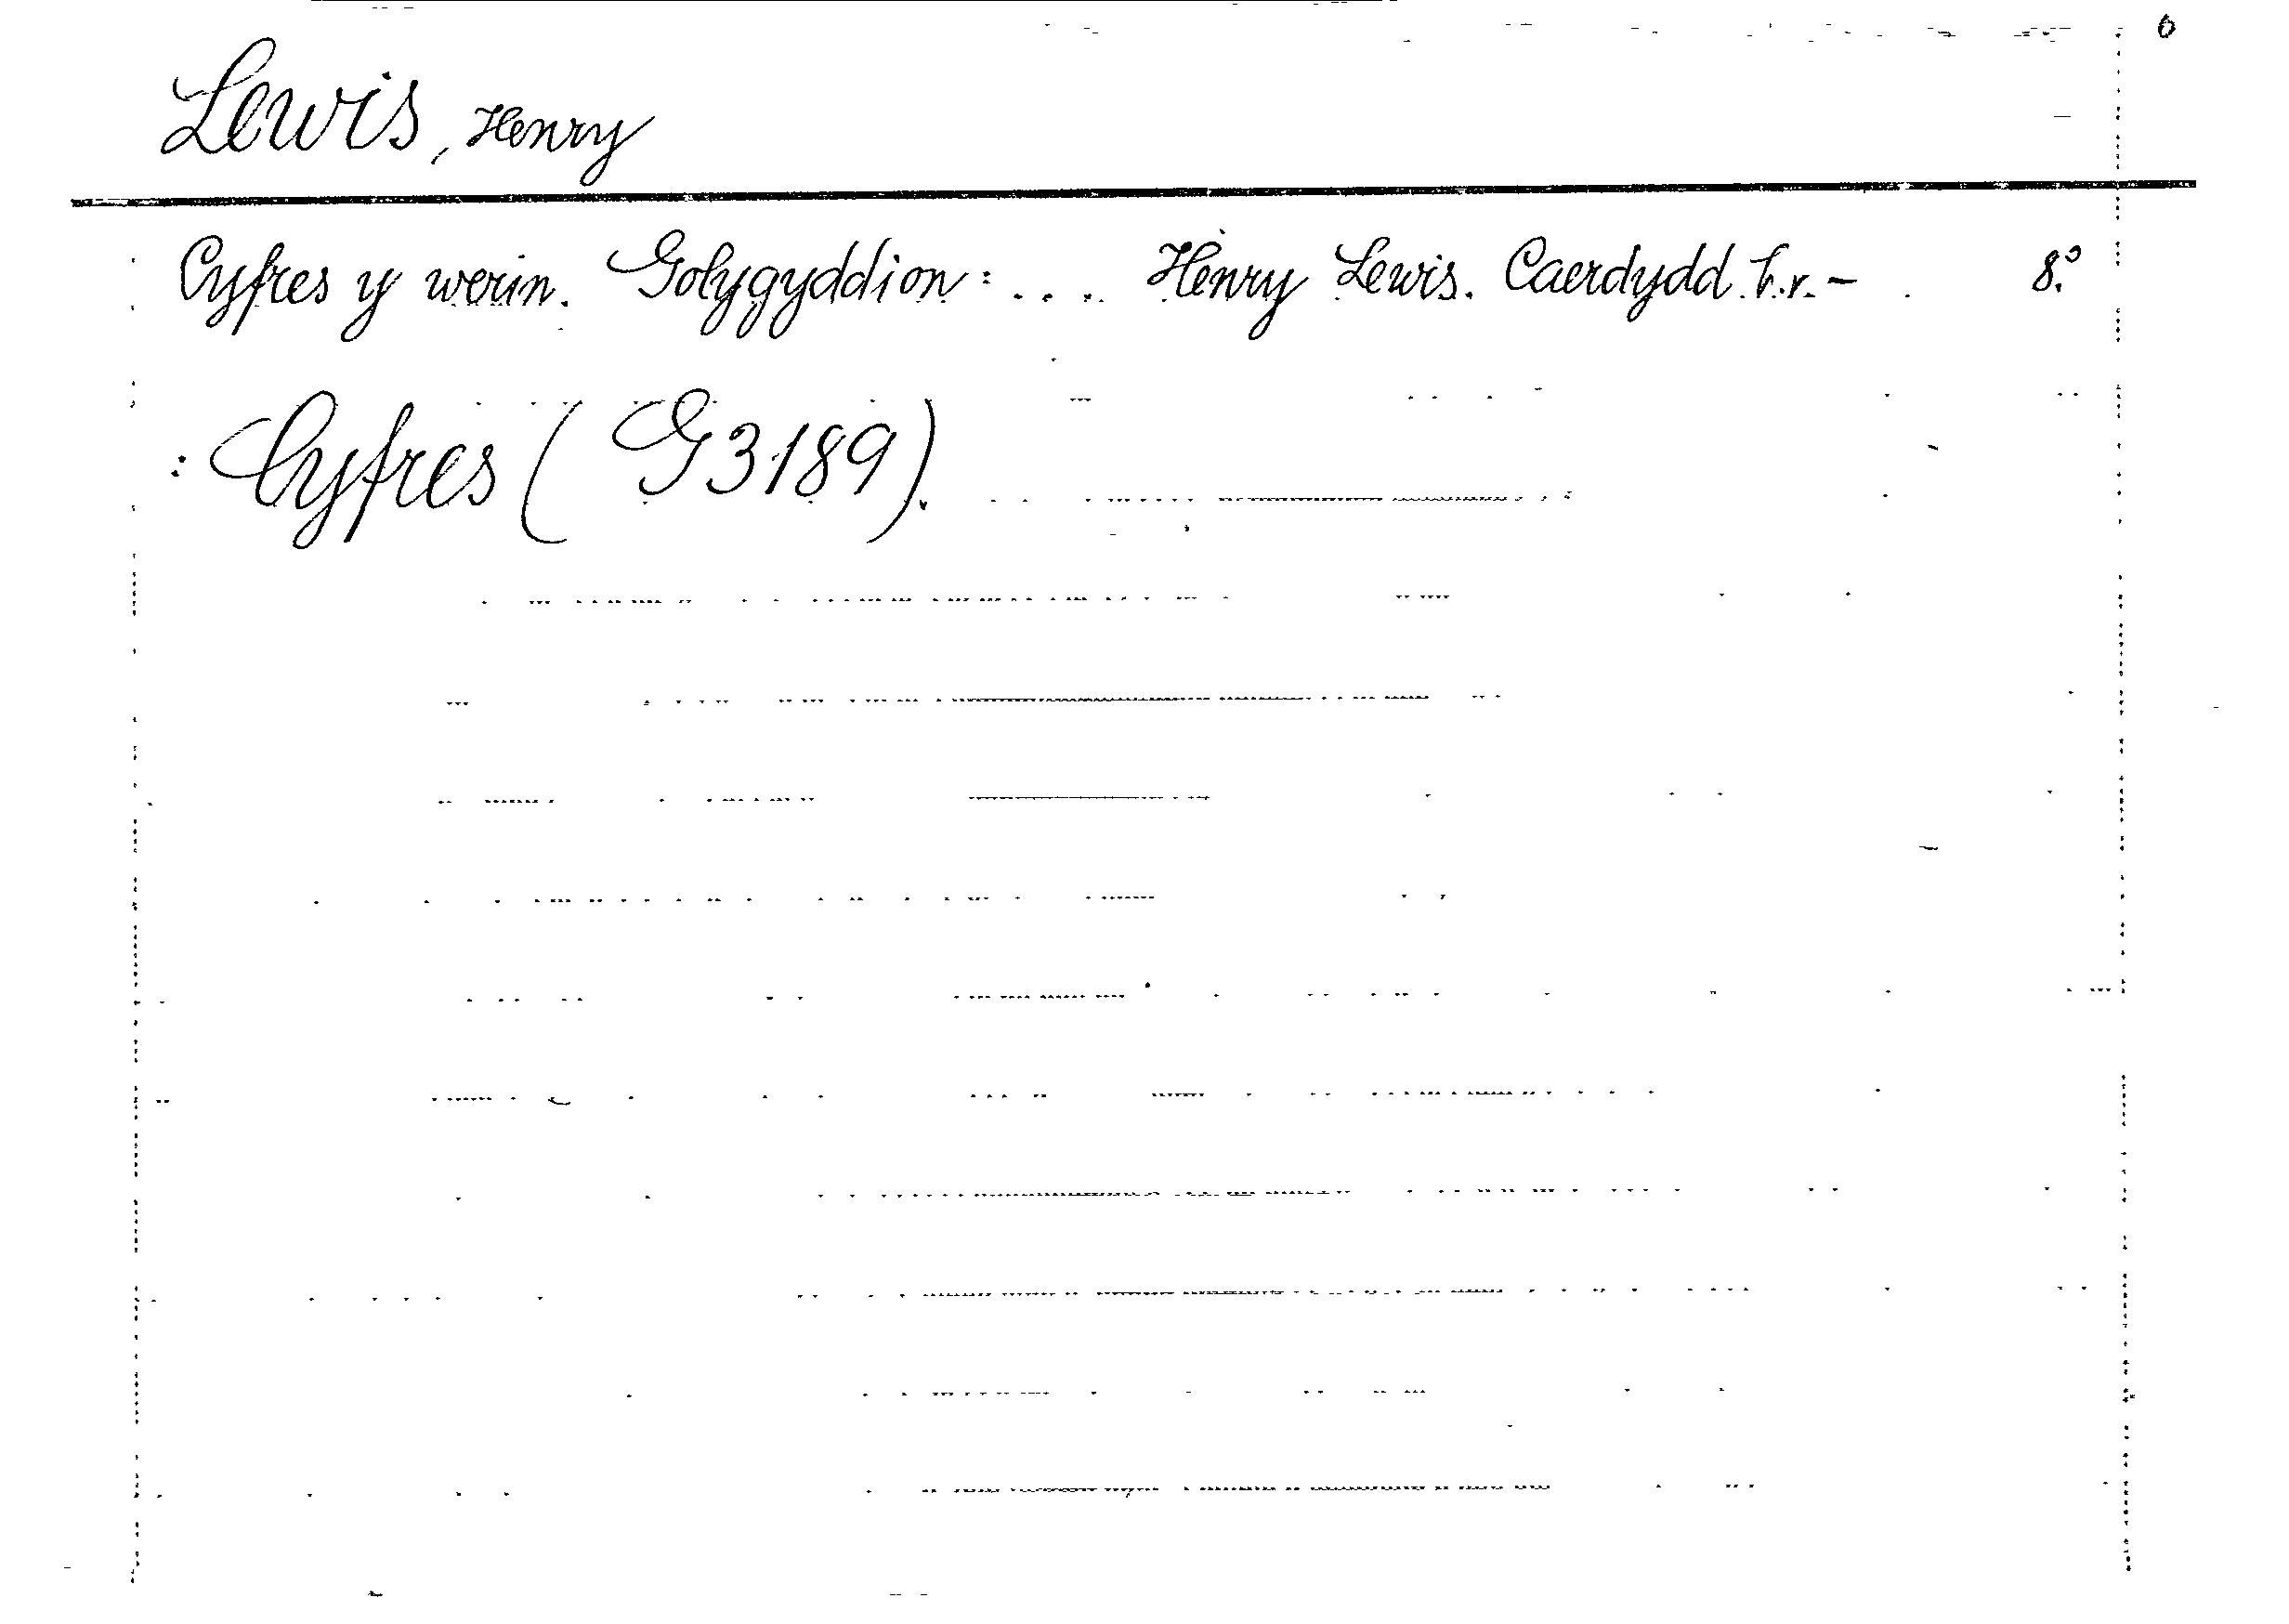 6
Lewis, Henry
Cyfres y werin. Golygyddion: .... Henry Lewis. Caerdydd. h.r.- 8:°
: Cyfres (G3189).